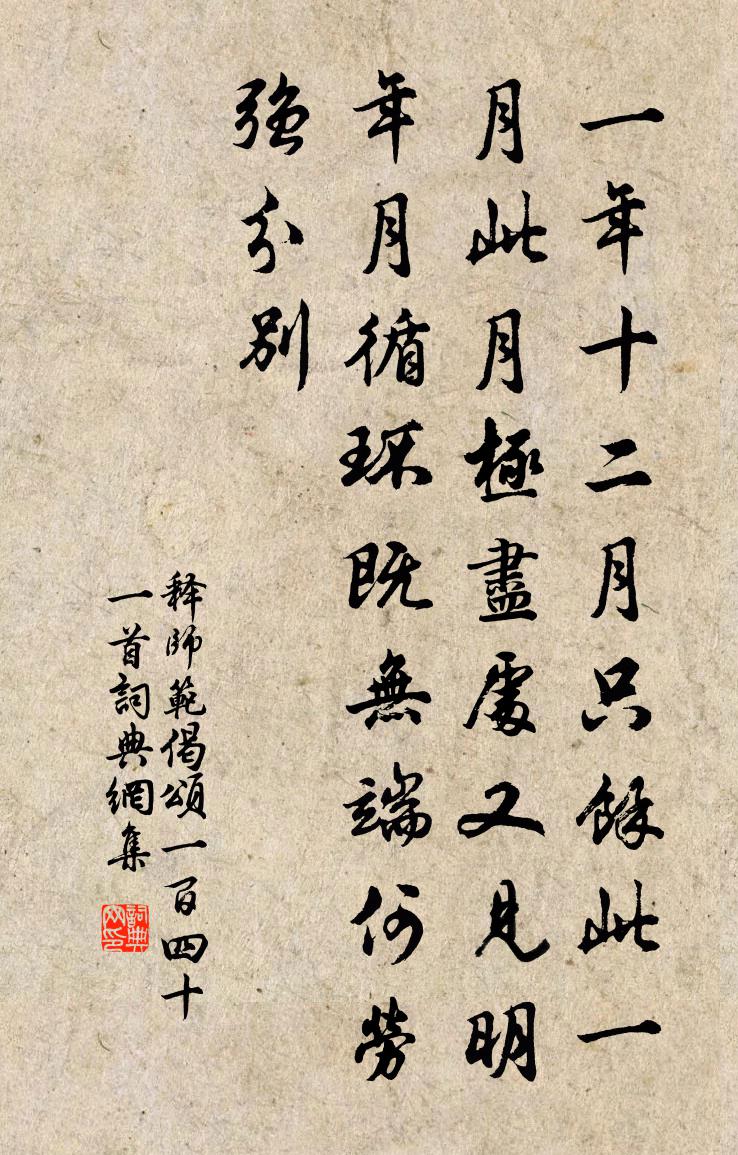 一年十二月只餘此一
月此月極盡處又見明
年月循环既無端何勞
强分别
释師範偈頌一百四十
一首詞典網集
詞典
网印